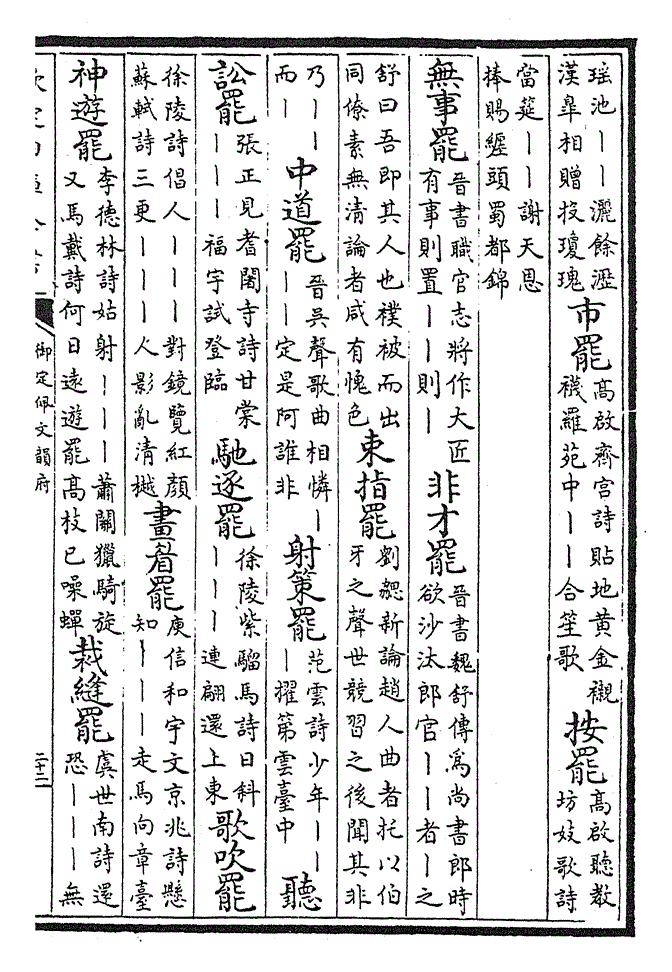 瑶池丨丨灑餘瀝漢臯相贈投瓊瑰市罷高啟齊宫詩貼地黄金襯襪羅苑中丨丨合笙歌按罷高啟聽教坊妓歌詩
當筵丨丨謝天恩捧賜纏頭蜀都錦
無事罷晉書職官志將作大匠有事則置丨丨則丨非才罷晉書魏舒傳為尚書郎時欲沙汰郎官丨丨者丨之
舒曰吾即其人也襆被而出同僚素無清論者咸有愧色束指罷劉勰新論趙人曲者托以伯牙之聲世競習之後聞其非
乃丨丨而丨中道罷晉吳聲歌曲相憐丨丨丨定是阿誰非射策罷范雲詩少年丨丨丨擢第雲臺中聽
訟罷張正見耆闍寺詩甘棠丨丨丨福宇試登臨馳逐罷徐陵紫騮馬詩日斜丨丨丨連翩還上東歌吹罷
徐陵詩倡人丨丨丨對鏡覽紅顔蘇軾詩三更丨丨丨人影亂清樾畫眉罷庾信和宇文京兆詩懸知丨丨丨走馬向章臺
神遊罷李德林詩姑射丨丨丨蕭關獵騎旋又馬戴詩何日遠遊罷高枝已噪蟬裁縫罷虞世南詩還恐丨丨丨無
御定佩文韻府